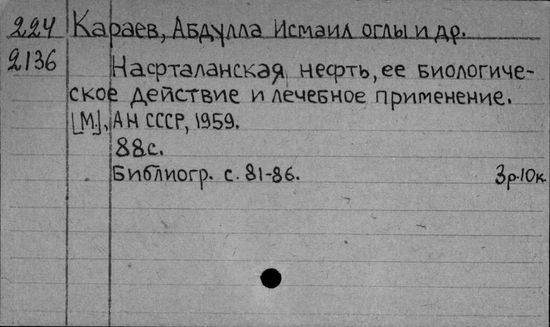 224 Караев, Абдулла Исмаил оглы и др.
2136 Нафталанская нефть, ее биологиче-
ское действие и лечебное применение.
[М.], АН СССР, 1959.
88с.
Библиогр. с. 81-86. 3р.10к.